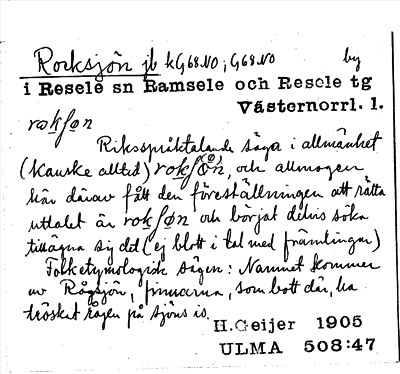 Rocksjön jb kG68NO; G68NO by
i Resele sn Ramsele och Resele tg
Västernorrl. l.
rokʃøn
Riksspråktalande säga i allmänhet
(kanske alltid) rokʃø̂n, och allmogen
har därav fått den föreställningen att rätta
uttalet är rokʃøn och börjat delvis söka
tillägna sig det (ej blott i tal med främlingar)
Folketymologisk sägen: Namnet kommer
av Rågsjön, finnarna, som bott där, ha
tröskat rågen på sjöns is.
H.Geijer 1905
ULMA 508:47